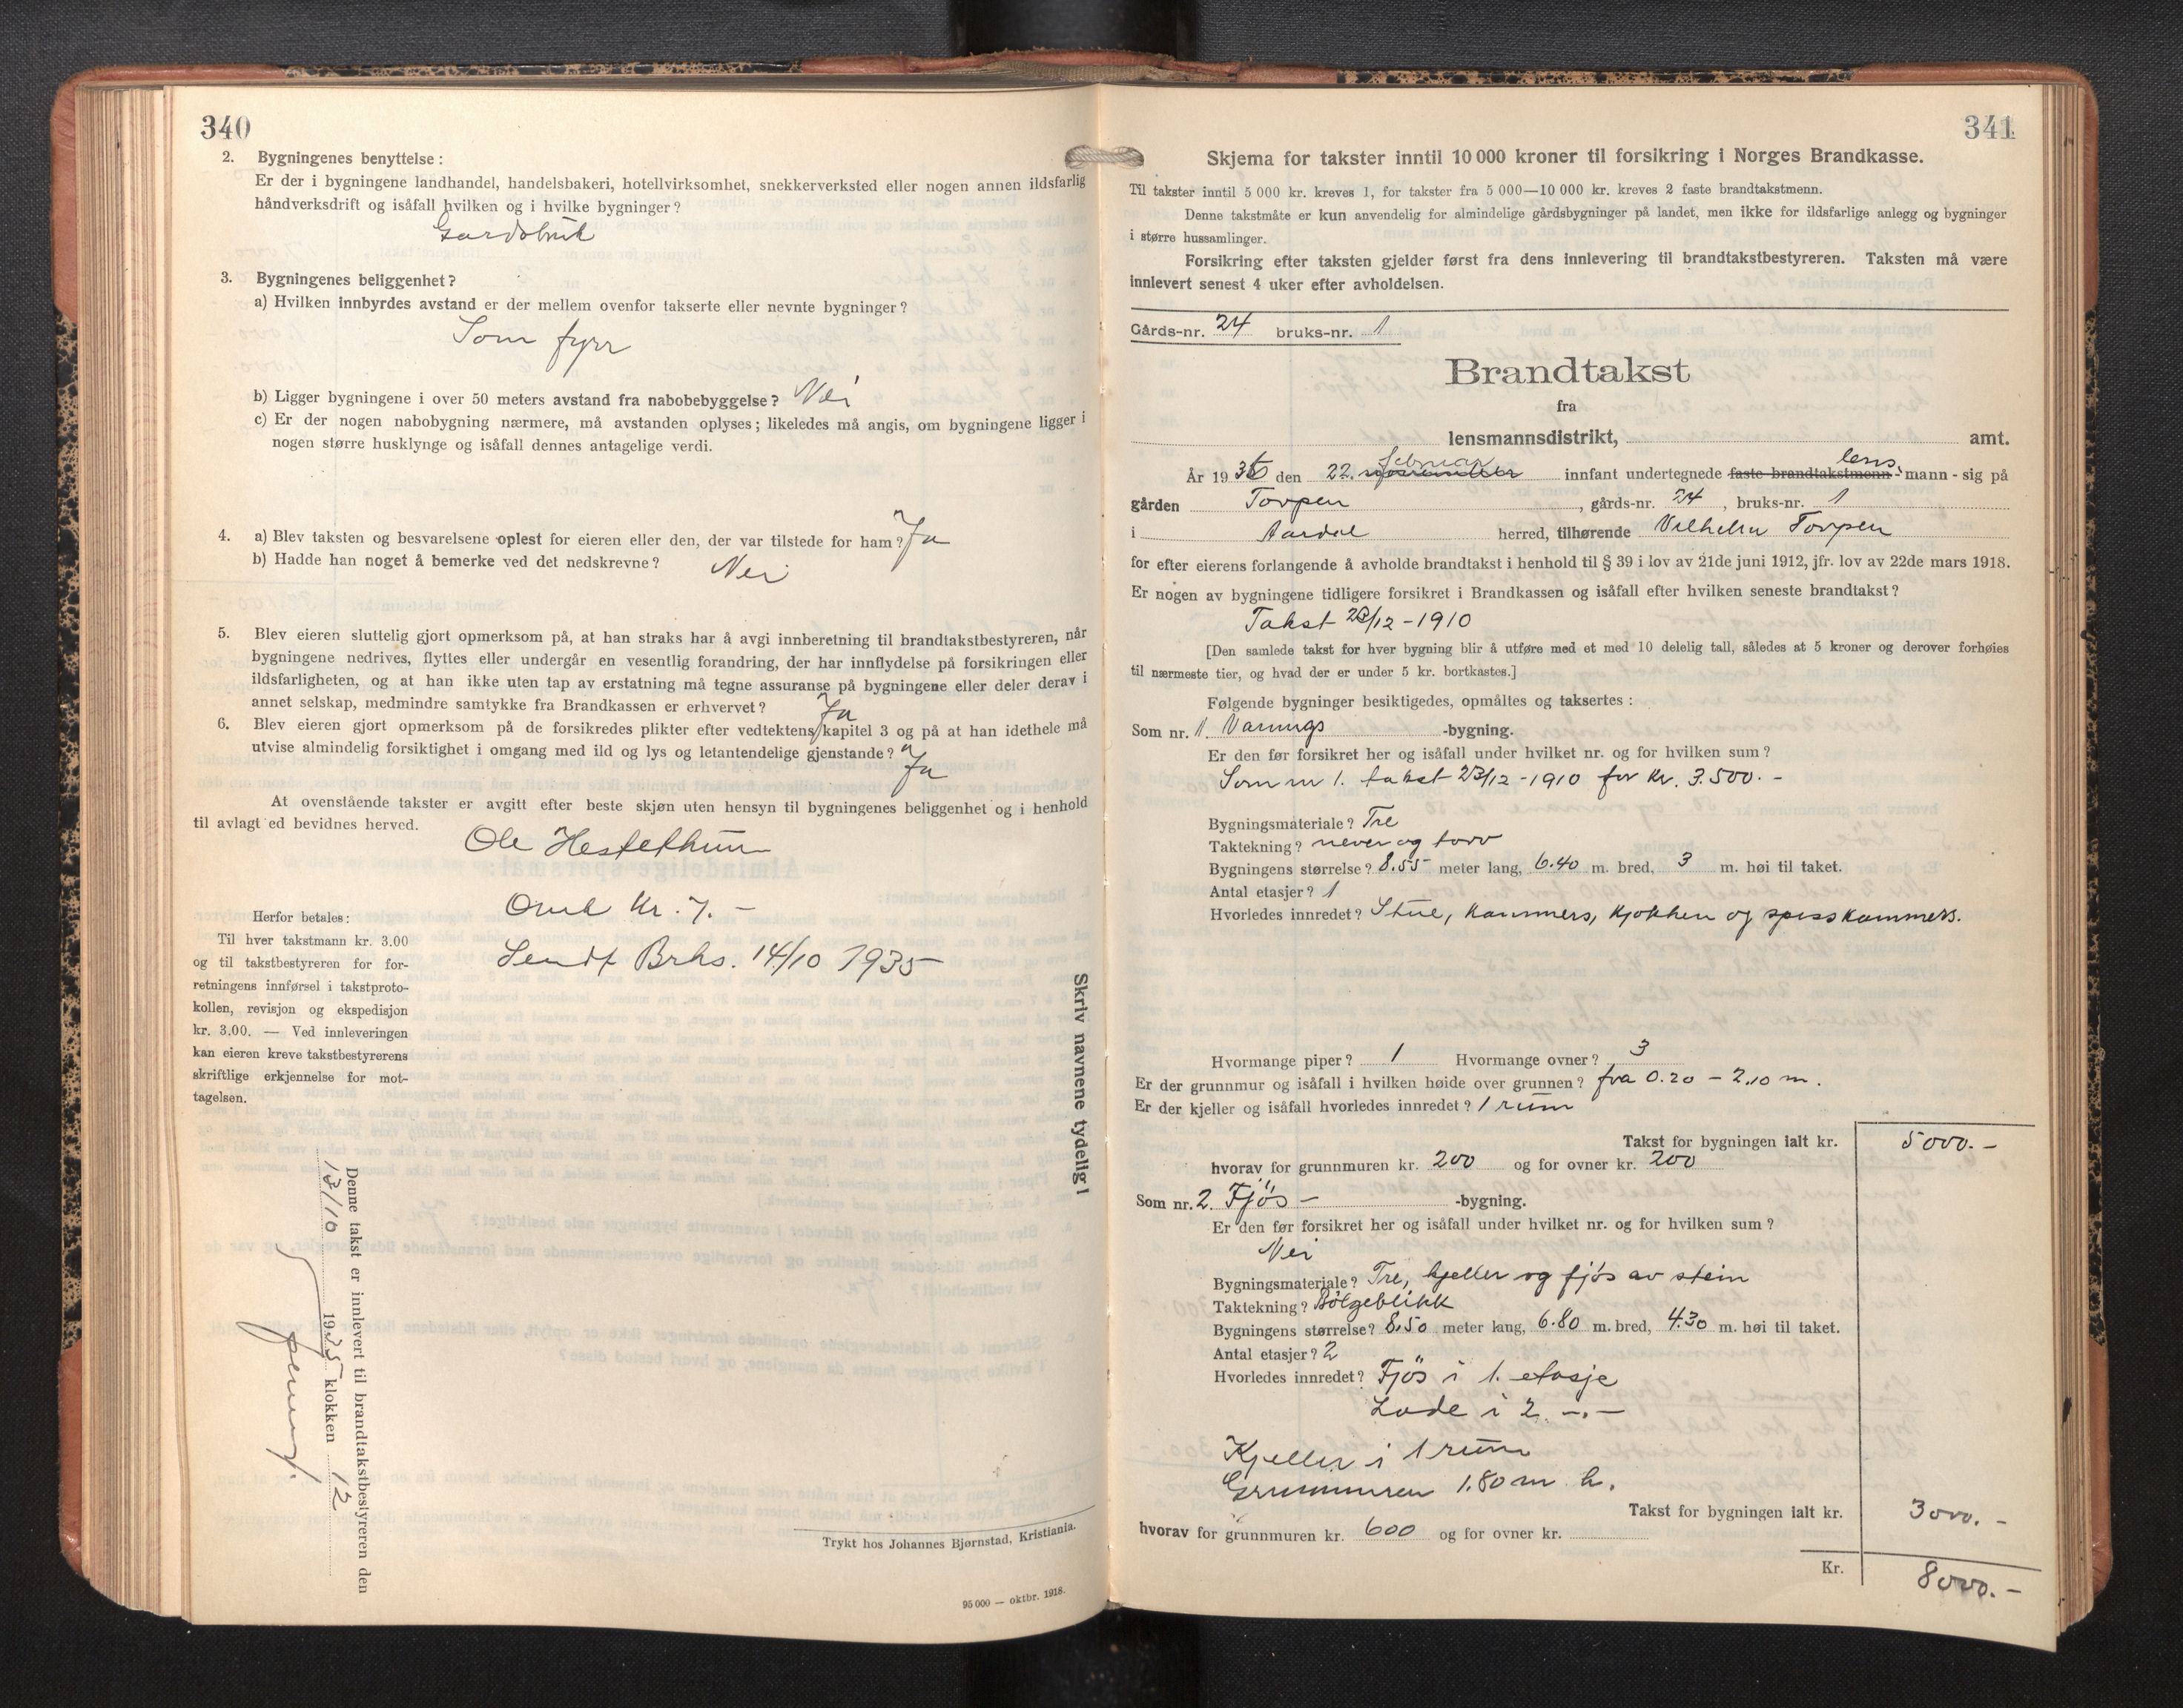 340
2. Bygningenes benyttelse:
Er der i bygningene landhandel, handelsbakeri, hotellvirksomhet, snekkerverksted eller nogen annen ildsfarlig
håndverksdrift og isåfall hvilken og i hvilke bygninger?
Gardsbruk
3. Bygningenes beliggenhet?
a) Hvilken innbyrdes avstand er der mellem ovenfor takserte eller nevnte bygninger?
Som fyrr
b) Ligger bygningene i over 50 meters avstand fra nabobebyggelse? Nei
c) Er der nogen nabobygning nærmere, må avstanden oplyses; likeledes må angis, om bygningene ligger i
nogen større husklynge og isåfall dennes antagelige verdi.
4. a) Blev taksten og besvarelsene oplest for eieren eller den, der var tilstede for ham? Ja
b) Hadde han noget å bemerke ved det nedskrevne? Nei
5. Blev eieren sluttelig gjort opmerksom på, at han straks har å avgi innberetning til brandtakstbestyreren, når
bygningene nedrives, flyttes eller undergår en vesentlig forandring, der har innflydelse på forsikringen eller
ildsfarligheten, og at han ikke uten tap av erstatning må tegne assuranse på bygningene eller deler derav i
annet selskap, medmindre samtykke fra Brandkassen er erhvervet? Ja
6. Blev eieren gjort opmerksom på de forsikredes plikter efter vedtektens kapitel 3 og på at han idethele må
utvise almindelig forsiktighet i omgang med ild og lys og letantendelige gjenstande? Ja
At ovenstående takster er avgitt efter beste skjøn uten hensyn til bygningenes beliggenhet og i henhold
til avlagt ed bevidnes herved.
Ole Hestethun
Kr. 7. -
Sendt Brks. 14/10 1935
Herfor betales:
Til hver takstmann kr. 3.00
og til takstbestyreren for for-
retningens innførsel i takstproto-
kollen, revisjon og ekspedisjon
kr. 3.00. — Ved innleveringen
kan eieren kreve takstbestyrerens
skriftlige erkjennelse for mot-
tagelsen.
Skriv navnene tydelig!
Denne takst er innlevert til brandtakstbestyreren den
12/10 1935 klokken 12
Trykt hos Johannes Bjørnstad, Kristiania.
95 000 — oktbr. 1918.
341
Skjema for takster inntil 10 000 kroner til forsikring i Norges Brandkasse.
Til takster inntil 5 000 kr. kreves 1, for takster fra 5 000—10 000 kr. kreves 2 faste brandtakstmenn.
Denne takstmåte er kun anvendelig for almindelige gårdsbygninger på landet, men ikke for ildsfarlige anlegg og bygninger
i større hussamlinger.
Forsikring efter taksten gjelder først fra dens innlevering til brandtakstbestyreren. Taksten må være
innlevert senest 4 uker efter avholdelsen.
Gårds-nr. 24 bruks-nr. 1
Brandtakst
fra
lensmannsdistrikt, amt.
År 19 35 den 22. februar innfant undertegnede faste brandtakstmenn lens-mann - sig på
gården Torpen, gårds-nr. 24, bruks-nr. 1
i Aardal herred, tilhørende Vilhelm Torpen
for efter eierens forlangende å avholde brandtakst i henhold til § 39 i lov av 21de juni 1912, jfr. lov av 22de mars 1918.
Er nogen av bygningene tidligere forsikret i Brandkassen og isåfall efter hvilken seneste brandtakst?
Takst 23/12 - 1910
[Den samlede takst for hver bygning blir å utføre med et med 10 delelig tall, således at 5 kroner og derover forhøies
til nærmeste tier, og hvad der er under 5 kr. bortkastes.]
Følgende bygninger besiktigedes, opmåltes og taksertes:
Som nr. 1. Vånings -bygning.
Er den før forsikret her og isåfall under hvilket nr. og for hvilken sum?
Som nr 1. takst 23/12 - 1910 for kr. 3.500. -
Bygningsmateriale? Tre
Taktekning? never og torv
Bygningens størrelse? 8.55 meter lang, 6.40 m. bred, 3 m. høi til taket.
Antal etasjer? 1
Hvorledes innredet? Stue, kammers, kjøkken og spisskammers.
Hvormange piper? 1 Hvormange ovner? 3
Er der grunnmur og isåfall i hvilken høide over grunnen? fra 0.20 - 2.10 m.
Er der kjeller og isåfall hvorledes innredet? 1 rum
Takst for bygningen ialt kr. 5000. -
hvorav for grunnmuren kr. 200 og for ovner kr. 200
Som nr. 2. Fjös - -bygning.
Er den før forsikret her og isåfall under hvilket nr. og for hvilken sum?
Nei
Bygningsmateriale? Tre, kjeller og fjös av stein
Taktekning? Bölgeblikk
Bygningens størrelse? 8.50 meter lang, 6.80 m. bred, 4.30 m. høi til taket.
Antal etasjer? 2
Hvorledes innredet? Fjös i 1. etasje
Lade i 2. -.-
Kjeller i 1 rum
Grunnmuren 1.80 m h.
Takst for bygningen ialt kr. 3000. -
hvorav for grunnmuren kr. 600 og for ovner kr.
Kr. 8000. -